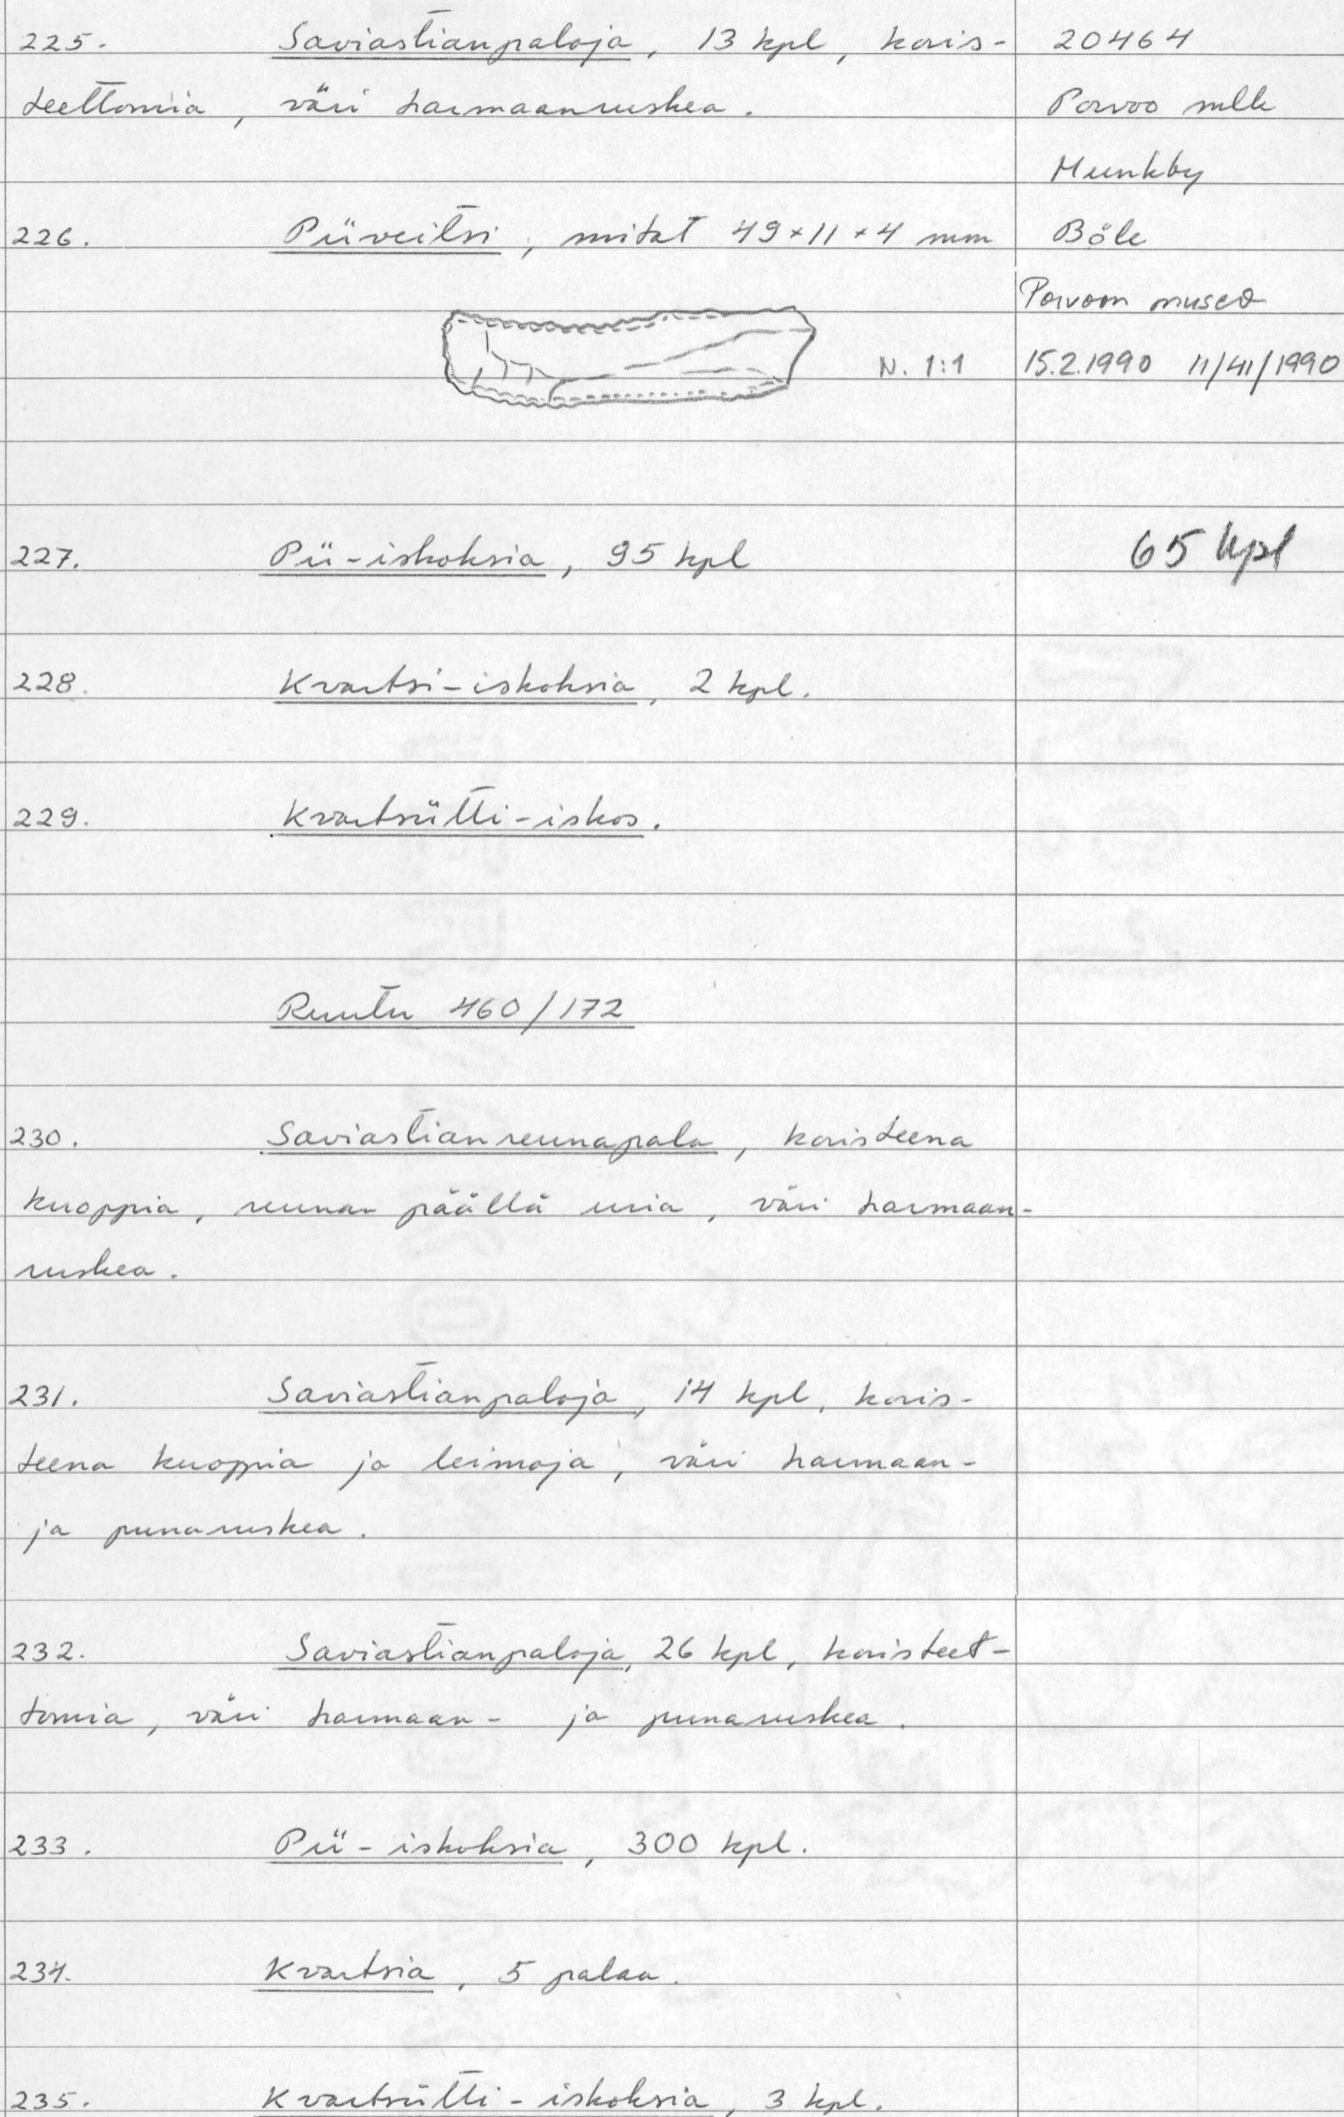 225. Saviastianpaloja, 13 kpl, koris-
20464
teettomia, väri harmaanruskea.
Porvoo mlk
Munkby
226. Piiveitsi, mitat 49×11×4 mm
Böle
Porvoon museo
N. 1:1
15.2.1990 11/41/1990
227. Pii-iskoksia, 95 kpl
65 kpl
228. Kvartsi-iskoksia, 2 kpl.
229. Kvartsiitti-iskos.
Ruutu 460/172
230. Saviastianreunapala, koristeena
kuoppia, reunan päällä uria, väri harmaan-
ruskea.
231. Saviastianpaloja, 14 kpl, koris-
teena kuoppia ja leimoja, väri harmaan-
ja punaruskea.
232. Saviastianpaloja, 26 kpl, koristeet-
tomia, väri harmaan- ja punaruskea.
233. Pii-iskoksia, 300 kpl.
234. Kvartsia, 5 palaa.
235. Kvartsiitti-iskoksia, 3 kpl.